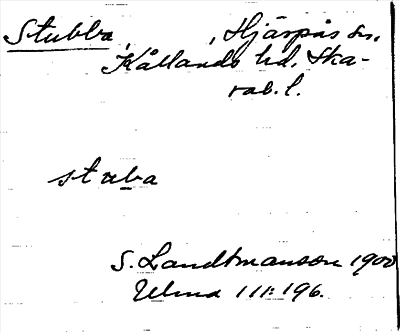 Stubba, , Hjärpås sn,
Kållands hd. Ska-
rab. l.
stuba
S. Landtmanson 1900
Ulma 111:196.